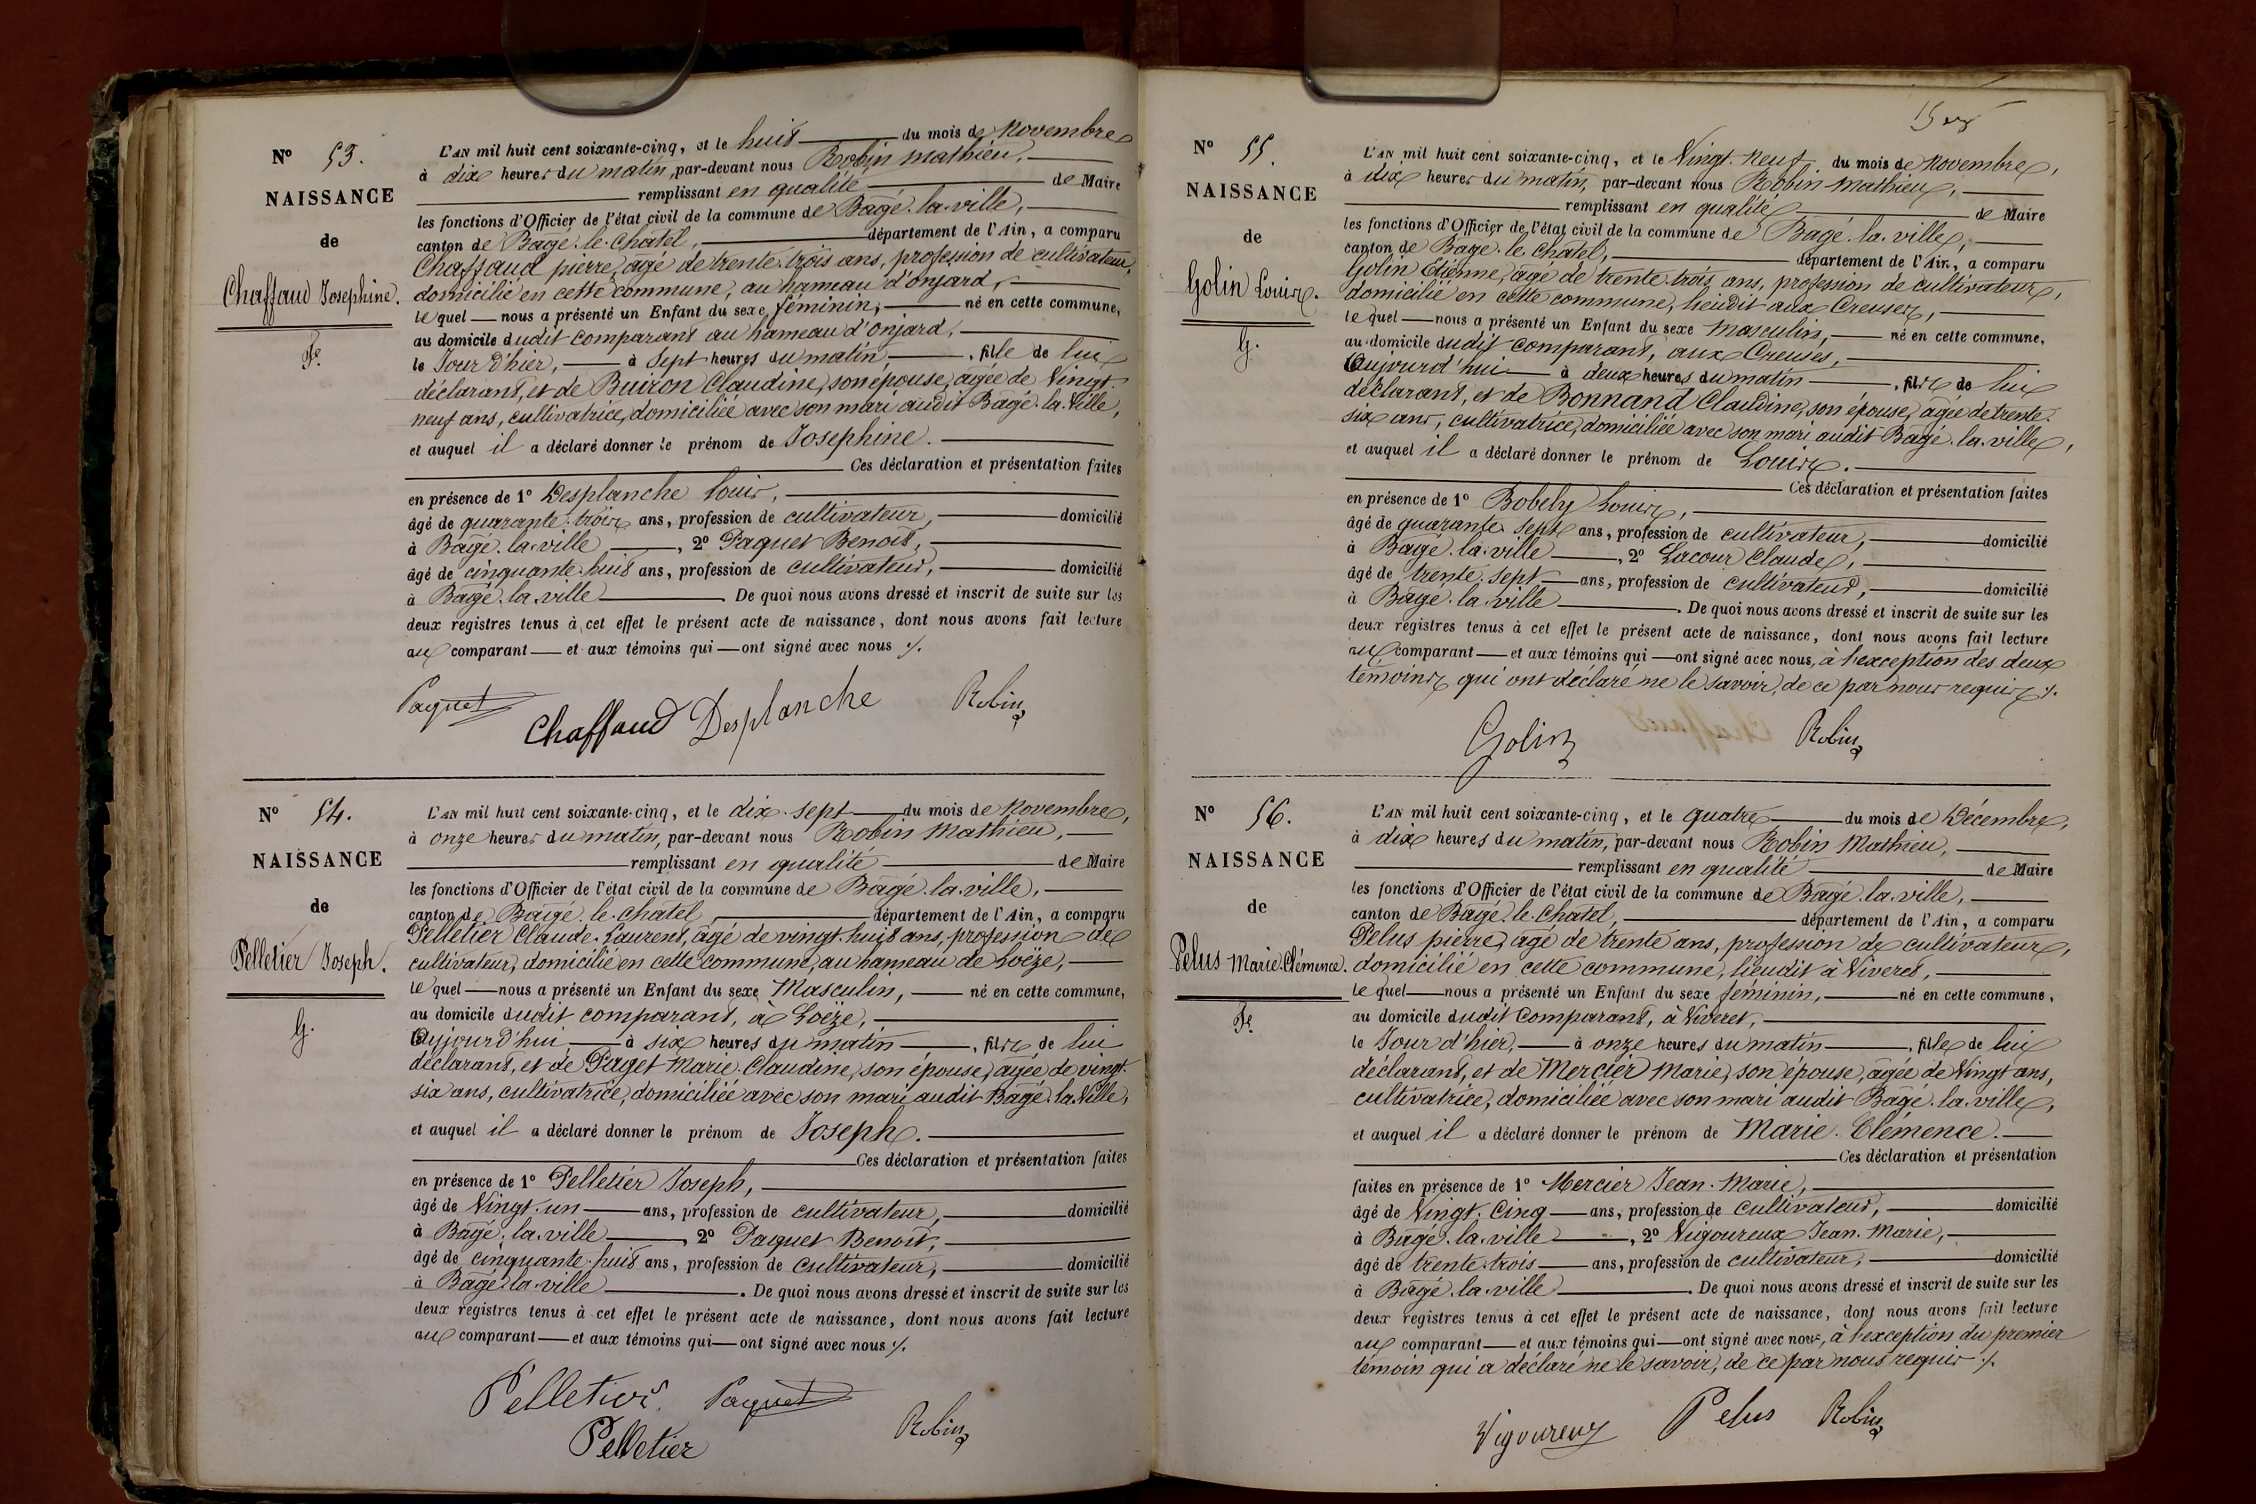 N° 53.
NAISSANCE
de
Chaffaud Josephine.
Fe.
L'AN mil huit cent soixante-cinq, et le huit du mois de Novembre
à dix heures du matin, par-devant nous Robin Mathieu,
remplissant en qualité de Maire
les fonctions d'Officier de l'état civil de la commune de Bagé-la-ville,
canton de Bagé-le-Chatel, département de l'Ain, a comparu
Chaffaud pierre, agé de trente-trois ans, profession de cultivateur,
domicilié en cette commune, au hameau d'onjard,
lequel nous a présenté un Enfant du sexe féminin, né en cette commune,
au domicile dudit comparant au hameau d'onjard,
le Jour d'hier, à sept heures du matin, fille de lui
déclarant, et de Buiron Claudine, son épouse, agée de Vingt-
neuf ans, cultivatrice, domiciliée avec son mari audit Bagé-la-Ville,
et auquel il a déclaré donner le prénom de Josephine.
Ces déclaration et présentation faites
en présence de 1° Desplanche Louis,
âgé de quarante-trois ans, profession de cultivateur, domicilié
à Bagé-la-ville, 2° Paquet Benoit,
âgé de cinquante-huit ans, profession de cultivateur, domicilié
à Bagé-la-ville. De quoi nous avons dressé et inscrit de suite sur les
deux registres tenus à cet effet le présent acte de naissance, dont nous avons fait lecture
au comparant et aux témoins qui ont signé avec nous ./.
Paquet Chaffaud Desplanche Robin
N° 54.
NAISSANCE
de
Pelletier Joseph.
G.
L'AN mil huit cent soixante-cinq, et le dix-sept du mois de Novembre,
à onze heures du matin, par-devant nous Robin Mathieu,
remplissant en qualité de Maire
les fonctions d'Officier de l'état civil de la commune de Bagé-la-ville,
canton de Bagé-le-Chatel, département de l'Ain, a comparu
Pelletier Claude-Laurent, agé de vingt-huit ans, profession de
cultivateur, domicilié en cette commune, au hameau de Loëze,
lequel nous a présenté un Enfant du sexe Masculin, né en cette commune,
au domicile dudit comparant, à Loëze,
Aujourd'hui à six heures du matin, fils de lui
déclarant, et de Paget Marie-Claudine, son épouse, agée de vingt-
six ans, cultivatrice, domiciliée avec son mari audit Bagé-la-Ville,
et auquel il a déclaré donner le prénom de Joseph.
Ces déclaration et présentation faites
en présence de 1° Pelletier Joseph,
âgé de Vingt-un ans, profession de cultivateur, domicilié
à Bagé-la-ville, 2° Paquet Benoit,
âgé de cinquante-huit ans, profession de cultivateur, domicilié
à Bagé-la-ville. De quoi nous avons dressé et inscrit de suite sur les
deux registres tenus à cet effet le présent acte de naissance, dont nous avons fait lecture
au comparant et aux témoins qui ont signé avec nous ./.
Pelletier Paquet Robin
Pelletier
N° 55.
NAISSANCE
de
Golin Louis.
G.
L'AN mil huit cent soixante-cinq, et le Vingt-Neuf du mois de Novembre,
à dix heures du matin, par-devant nous Robin Mathieu,
remplissant en qualité de Maire
les fonctions d'Officier de l'état civil de la commune de Bagé-la-ville,
canton de Bagé-le-Chatel, département de l'Ain, a comparu
Golin Etienne, agé de trente-trois ans, profession de cultivateur,
domicilié en cette commune, lieudit aux Creuses,
lequel nous a présenté un Enfant du sexe Masculin, né en cette commune,
au domicile dudit comparant, aux Creuses,
Aujourd'hui à deux heures du matin, fils de lui
déclarant, et de Bonnand Claudine, son épouse, agée de trente-
six ans, cultivatrice, domiciliée avec son mari audit Bagé-la-ville,
et auquel il a déclaré donner le prénom de Louis.
Ces déclaration et présentation faites
en présence de 1° Bobely Louis,
âgé de quarante-sept ans, profession de cultivateur, domicilié
à Bagé-la-ville, 2° Lacour Claude,
âgé de trente-sept ans, profession de cultivateur, domicilié
à Bagé-la-ville. De quoi nous avons dressé et inscrit de suite sur les
deux registres tenus à cet effet le présent acte de naissance, dont nous avons fait lecture
au comparant et aux témoins qui ont signé avec nous, à l'exception des deux
témoins qui ont déclaré ne le savoir, de ce par nous requis ./.
Golin Robin
N° 56.
NAISSANCE
de
Pelus Marie Clémence.
Fe.
L'AN mil huit cent soixante-cinq, et le quatre du mois de Décembre,
à dix heures du matin, par-devant nous Robin Mathieu,
remplissant en qualité de Maire
les fonctions d'Officier de l'état civil de la commune de Bagé-la-ville,
canton de Bagé-le-Chatel, département de l'Ain, a comparu
Pelus pierre, agé de trente ans, profession de cultivateur,
domicilié en cette commune, lieudit à Viveret,
lequel nous a présenté un Enfant du sexe féminin, né en cette commune,
au domicile dudit comparant, à Viveret,
le Jour d'hier, à onze heures du matin, fille de lui
déclarant, et de Mercier Marie, son épouse, agée de Vingt ans,
cultivatrice, domiciliée avec son mari audit Bagé-la-ville,
et auquel il a déclaré donner le prénom de Marie-Clémence.
Ces déclaration et présentation
faites en présence de 1° Mercier Jean-Marie,
âgé de Vingt-Cinq ans, profession de cultivateur, domicilié
à Bagé-la-ville, 2° Vigoureux Jean-Marie,
âgé de trente-trois ans, profession de cultivateur, domicilié
à Bagé-la-ville. De quoi nous avons dressé et inscrit de suite sur les
deux registres tenus à cet effet le présent acte de naissance, dont nous avons fait lecture
au comparant et aux témoins qui ont signé avec nous, à l'exception du premier
témoin qui a déclaré ne le savoir, de ce par nous requis ./.
Vigoureux Pelus Robin